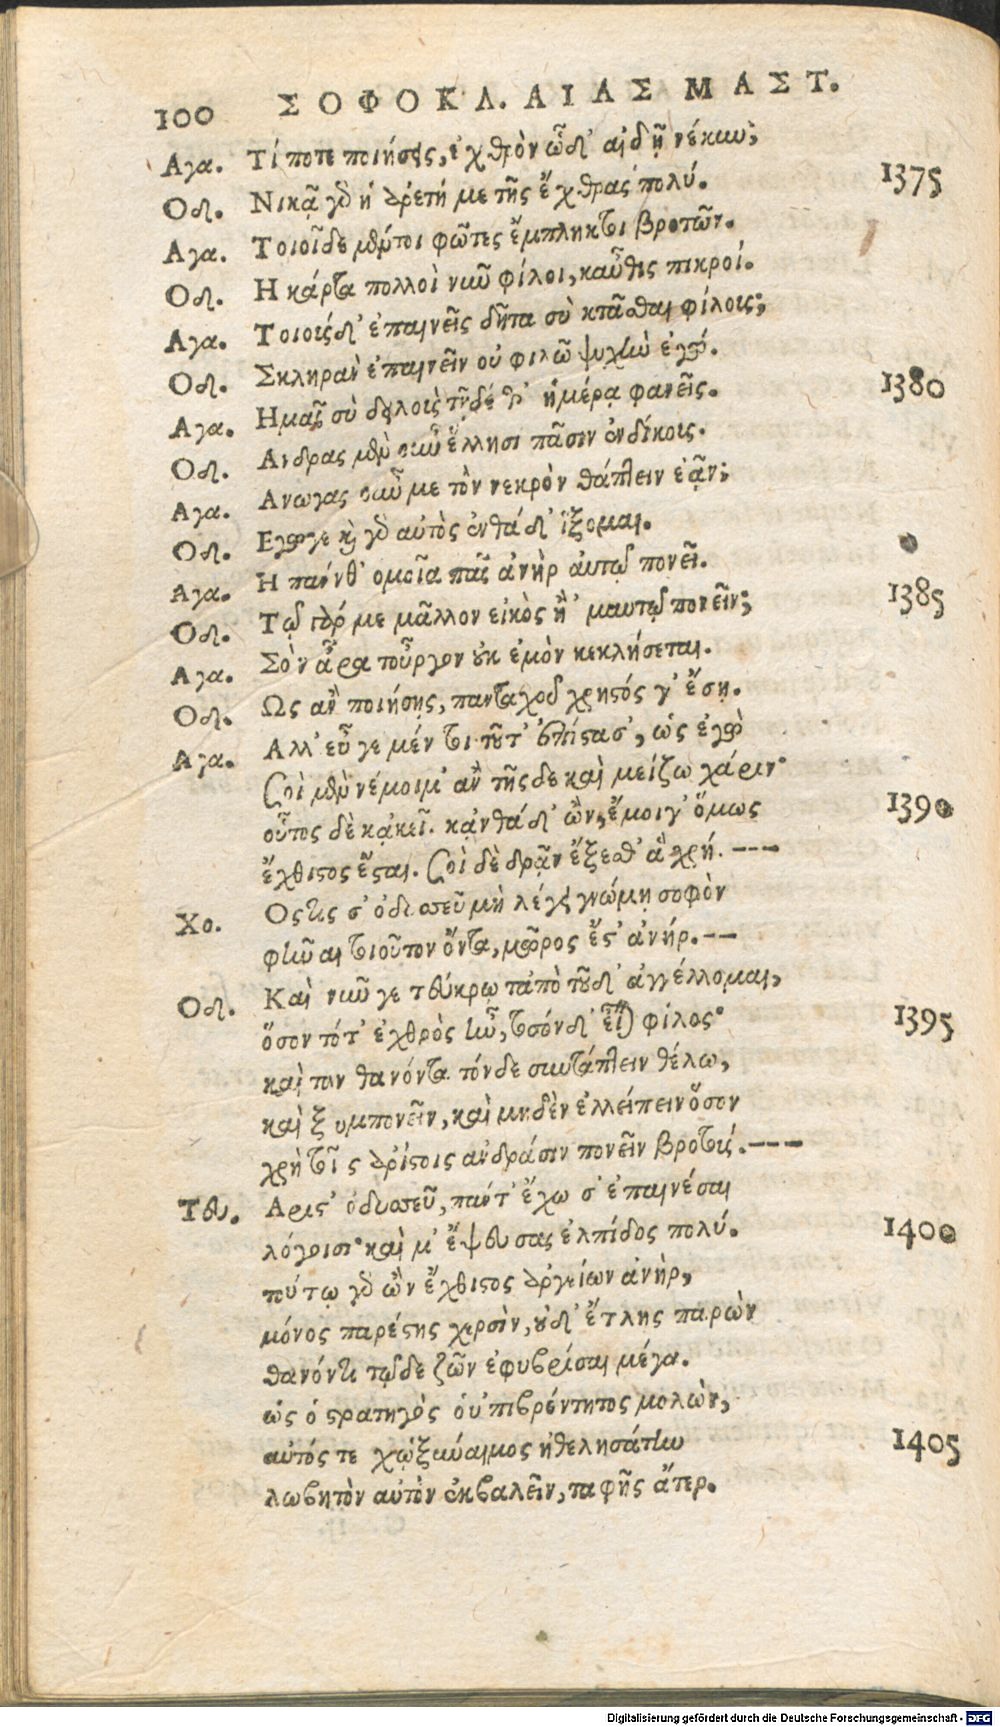 100 ΣΟΦΟΚΛ. ΑΙΑΣ ΜΑΣΤ.
Αγα. Τί ποτε ποιήσεις, ἐχθρὸν ὧδ' αἰδῇ νέκυν;
Οδ. Νικᾷ γὸ ἡ ἀρετή με τῆς ἔχθρας πολύ. 1375
Αγα. Τοιοῖδε μέντοι φῶτες ἔμπληκτοι βροτῶν.
Οδ. Η κάρτα πολλοὶ νῦν φίλοι, καὖθις πικροί.
Αγα. Τοιούςδ' ἐπαινεῖς δῆτα σὺ κτᾶσθαι φίλους;
Οδ. Σκληρὰν ἐπαινεῖν οὐ φιλῶ ψυχὴν ἐγώ.
Αγα. Ημᾶς σὺ δειλοὺς τῇδέ θ' ἡμέρᾳ φανεῖς. 1380
Οδ. Ανδρας μὲν οὖν ἕλλησι πᾶσιν ἐνδίκοις.
Αγα. Ανωγας οὖν με τὸν νεκρὸν θάπτειν ἐᾷν;
Οδ. Εγωγε καὶ γὸ αὐτὸς ἐνθάδ' ἵξομαι.
Αγα. Η πάνθ' ομοῖα πᾶς ἀνὴρ ἁυτῷ πονεῖ.
Οδ. Τῷ γάρ με μᾶλλον εἰκὸς ἢ 'μαυτῷ πονεῖν; 1385
Αγα. Σὸν ἆρα τοὖργον οὐκ ἐμὸν κεκλήσεται.
Οδ. Ως ἂν ποιήσῃς, πανταχοῦ χρηστός γ' ἔσῃ.
Αγα. Αλλ' εὖ γε μέν τοι τοῦτ' ἐπίστασ', ὡς ἐγὼ
σοὶ μὲν νέμοιμ' ἂν τῆςδε καὶ μείζω χάριν·
οὗτος δὲ κᾀκεῖ. κᾀνθάδ' ὢν, ἔμοιγ' ὅμως 1390
ἔχθιστος ἔσται. σοὶ δὲ δρᾷν ἔξεσθ' ἃ χρή. ---
Χο. Οςτις σ' ὀδυσσεῦ μὴ λέγει γνώμῃ σοφὸν
φῦναι τοιοῦτον ὄντα, μῶρος ἔστ' ἀνήρ. --
Οδ. Καὶ νῦν γε τεύκρῳ τἀπὸ τοῦδ' ἀγγέλλομαι,
ὅσον τότ' ἐχθρὸς ἦν, τοσόνδ' εἶναι φίλος· 1395
καὶ τὸν θανόντα τόνδε συνθάπτειν θέλω,
καὶ ξυμπονεῖν, καὶ μηδὲν ἐλλείπειν ὅσον
χρὴ τοῖς ἀρίστοις ἀνδράσιν πονεῖν βροτούς. ---
Τευ. Αριστ' ὀδυσσεῦ, πάντ' ἔχω σ' ἐπαινέσαι
λόγοισι· καὶ μ' ἔψευσας ἐλπίδος πολύ. 1400
τούτῳ γὸ ὢν ἔχθιστος ἀργείων ἀνὴρ,
μόνος παρέστης χερσὶν, οὐδ' ἔτλης παρὼν
θανόντι τῷδε ζῶν ἐφυβρίσαι μέγα.
ὡς ὁ στρατηγὸς ὁὐπιβρόντητος μολὼν,
αὐτός τε χᾠ ξύναιμος ἠθελησάτην 1405
λωβητὸν αὐτὸν ἐκβαλεῖν, ταφῆς ἄτερ.
Digitalisierung gefördert durch die Deutsche Forschungsgemeinschaft - DFG